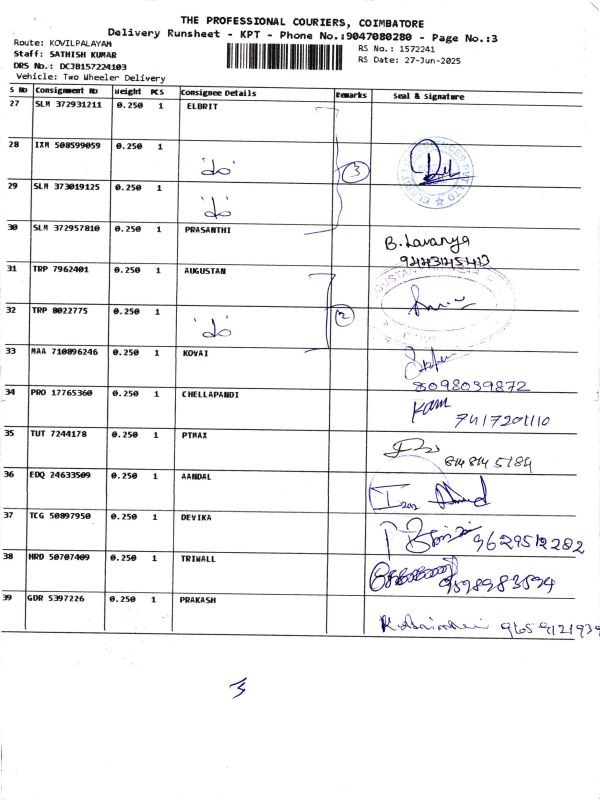 THE PROFESSIONAL COURIERS, COIMBATORE
Delivery Runsheet - KPT - Phone No.:9047080280 - Page No.:3
Route: KOVILPALAYAM
Staff: SATHISH KUMAR
DRS No.: DCJB157224103
Vehicle: Two Wheeler Delivery
RS No.: 1572241
RS Date: 27-Jun-2025
S No Consignment No Weight PCS Consignee Details Remarks Seal & Signature
27 SLM 372931211 0.250 1 ELBRIT
28 IXM 508599059 0.250 1 'do' 3
29 SLM 373019125 0.250 1 'do'
30 SLM 372957810 0.250 1 PRASANTHI B. Lavanya
31 TRP 7962401 0.250 1 AUGUSTAN
32 TRP 8022775 0.250 1 'do' 2
33 MAA 710896246 0.250 1 KOVAI
8098039872
34 PRO 17765360 0.250 1 CHELLAPANDI
35 TUT 7244178 0.250 1 PTMAX
36 EDQ 24633509 0.250 1 AANDAL
37 TCG 50897950 0.250 1 DEVIKA 9629512282
38 HRD 50707409 0.250 1 TRIWALL
39 GDR 5397226 0.250 1 PRAKASH
3